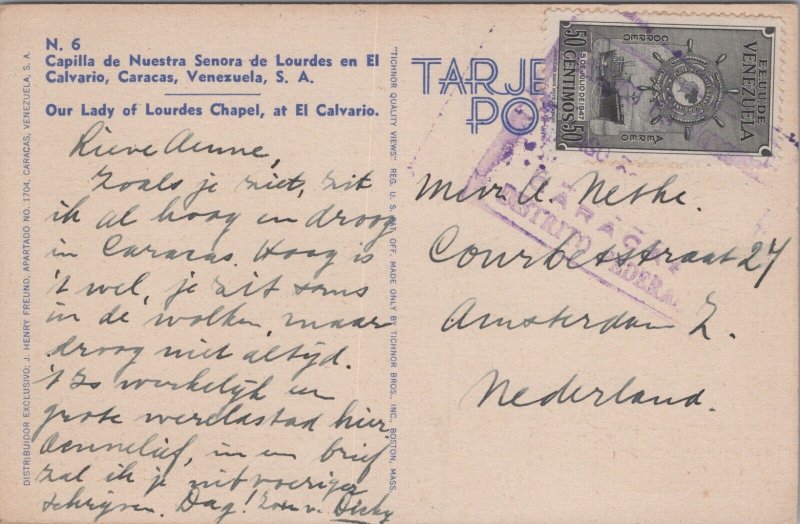 N. 6
Capilla de Nuestra Senora de Lourdes en El
Calvario, Caracas, Venezuela, S. A.
Our Lady of Lourdes Chapel, at El Calvario.
Lieve Aenne,
Zoals je ziet, zit
ik al hoog en droog
in Caracas. Hoog is
't wel, je zit soms
in de wolken, maar
droog niet altijd.
't Is werkelijk een
grote wereldstad hier
Aennelief, in een brief
zal ik je uitvoeriger
schrijven. Dag! Zoen v. Dicky
DISTRIBUIDOR EXCLUSIVO, J. HENRY FREUND, APARTADO NO. 1704, CARACAS, VENEZUELA, S. A.
"TICHNOR QUALITY VIEWS" REG. U. S. PAT. OFF. MADE ONLY BY TICHNOR BROS., INC., BOSTON, MASS.
TARJE
PO
EE.UU. DE
VENEZUELA
CORREO
AEREO
50 CENTIMOS 50
CARACAS
DISTRITO FEDERAL
Mevr. A. Nethe.
Courbetstraat 27
Amsterdam Z.
Nederland.